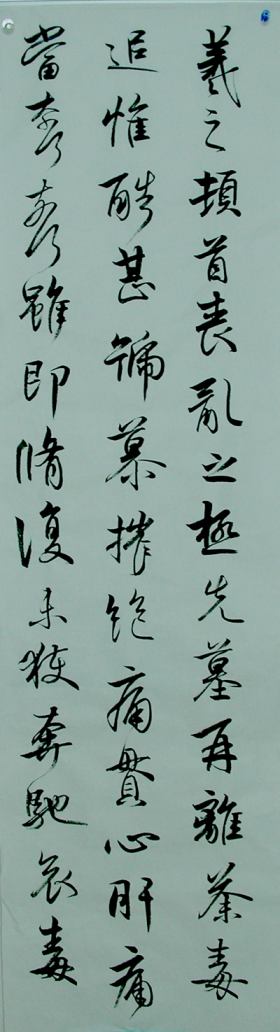 羲之頓首喪亂之極先墓再離荼毒
追惟酷甚號慕摧絕痛貫心肝痛
當奈何奈何雖即脩復未獲奔馳哀毒